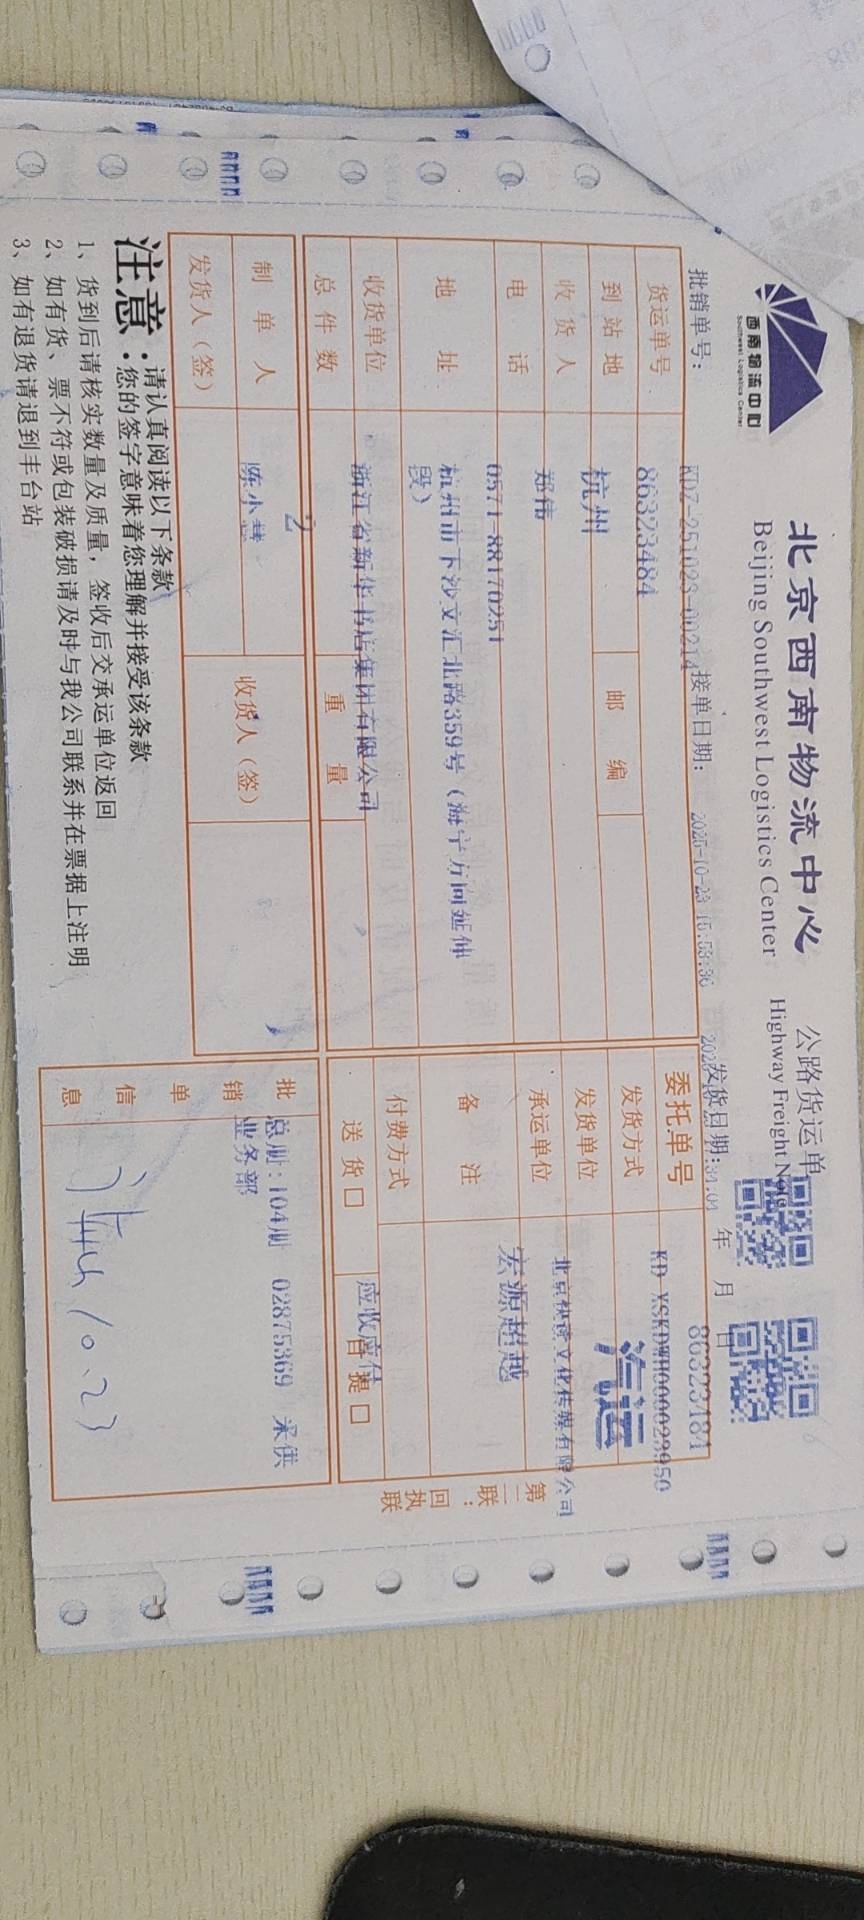 西南物流中心
Southwest Logistics Center
北京西南物流中心
Beijing Southwest Logistics Center
公路货运单
Highway Freight Note
批销单号：
KDZ-251023-00214
接单日期：
2025-10-23
发货日期：
年 月 日
货运单号 86323484
委托单号 86323484
到站地 杭州
邮编
发货方式 汽运
收货人 郑伟
发货单位 北京快读文化传媒有限公司
电话 0571-88170251
承运单位 宏源超越
地址 杭州市下沙文汇北路359号（海宁方向延伸
段）
备注
收货单位 浙江省新华书店集团有限公司
付费方式 应收应付
总件数 2
重量
送货□
自提□
制单人
收货人（签）
发货人（签）
批销单信息
总册：104册 02875369 采供
业务部
10.23
第二联：回执联
注意：请认真阅读以下条款
您的签字意味着您理解并接受该条款
1、货到后请核实数量及质量，签收后交承运单位返回
2、如有货、票不符或包装破损请及时与我公司联系并在票据上注明
3、如有退货请退到丰台站